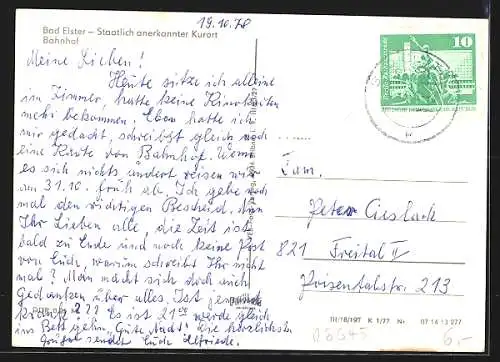 19.10.78
Bad Elster – Staatlich anerkannter Kurort
Bahnhof
Meine Lieben!
Heute sitze ich alleine
im Zimmer, hatte keine
mehr bekommen. Eben hatte ich
mir gedacht, schreibst gleich noch
eine Karte vom Bahnhof. Wenn
es sich nichts ändert reisen wir
am 31.10. früh ab. Ich gebe noch
mal den richtigen Bescheid. Nun
Ihr Lieben alle, die Zeit ist
bald zu Ende und noch keine Post
von Euch, warum schreibt Ihr nicht
mal? Man macht sich doch auch
Gedanken über alles. Ist jemand
krank??? Es ist 21 00 werde gleich
ins Bett gehn „Gute Nacht“ Die herzlichsten
Grüße sendet Euch Elfriede.
10
Fam.
Peter
821 Freital II
213
III/18/197 K 1/77 Nr 07 14 13 277
6,-